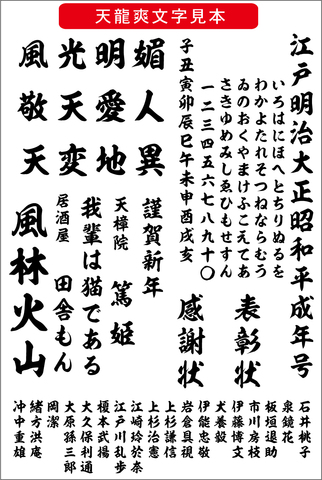 天龍爽文字見本
江戸明治大正昭和平成年号
いろはにほへとちりぬるを
わかよたれそつねならむう
ゐのおくやまけふこえてあ
さきゆめみしゑひもせすん
一二三四五六七八九十〇
子丑寅卯辰巳午未申酉戌亥
媚人異
明愛地
光天変
風敬天
表彰状
感謝状
謹賀新年
天樟院 篤姫
我輩は猫である
居酒屋 田舎もん
風林火山
石井桃子
泉鏡花
板垣退助
市川房枝
伊藤博文
犬養毅
伊能忠敬
岩倉具視
上杉謙信
上杉治憲
江崎玲於奈
江戸川乱歩
榎本武揚
大久保利通
大原孫三郎
岡潔
緒方洪庵
沖中重雄